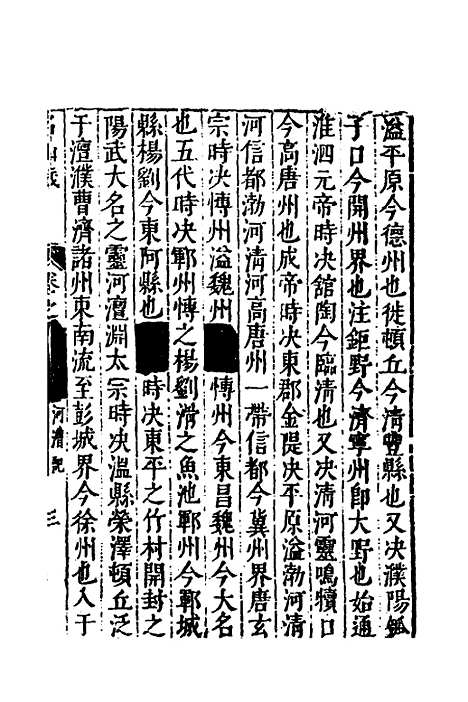 溢平原今德州也徙頓丘今清豐縣也又决濮陽瓠
子口今開州界也注鉅野今濟寧州即大野也始通
淮泗元帝時决舘陶今臨清也又决清河靈鳴犢口
今高唐州也成帝時决東郡金隄决平原溢渤河清
河信都渤河清河高唐州一帶信都今冀州界唐玄
宗時决愽州溢魏州愽州今東昌魏州今大名
也五代時决鄆州愽之楊劉滑之魚池鄆州今鄆城
縣楊劉今東阿縣也時决東平之竹村開封之
陽武大名之靈河澶淵太宗時决溫縣榮澤頓丘泛
于澶濮曹濟諸州東南流至彭城界今徐州也入于
名山藏 卷之 河漕記 三